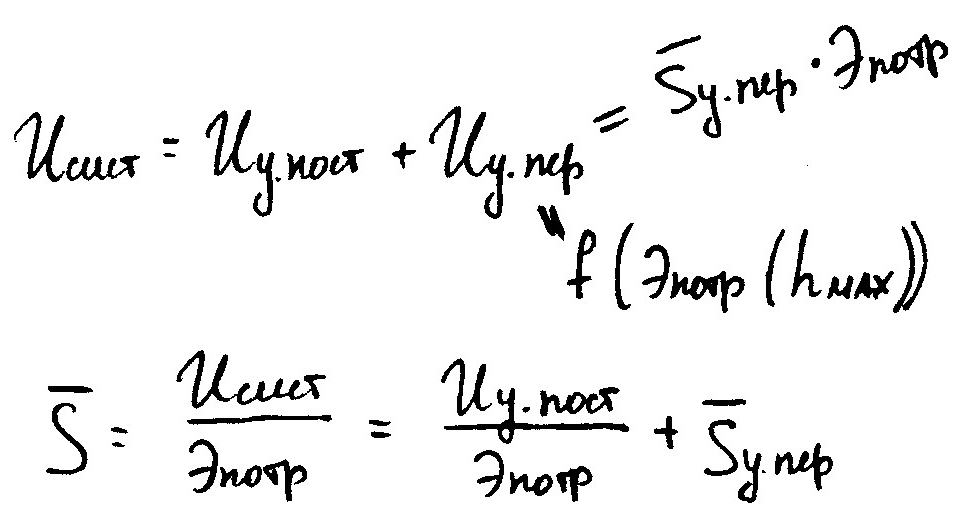 Исист = Иу.пост + Иу.пер = S̄у.пер · Эпотр
= f (Эпотр (hмах))
S̄ = Исист / Эпотр = Иу.пост / Эпотр + S̄у.пер